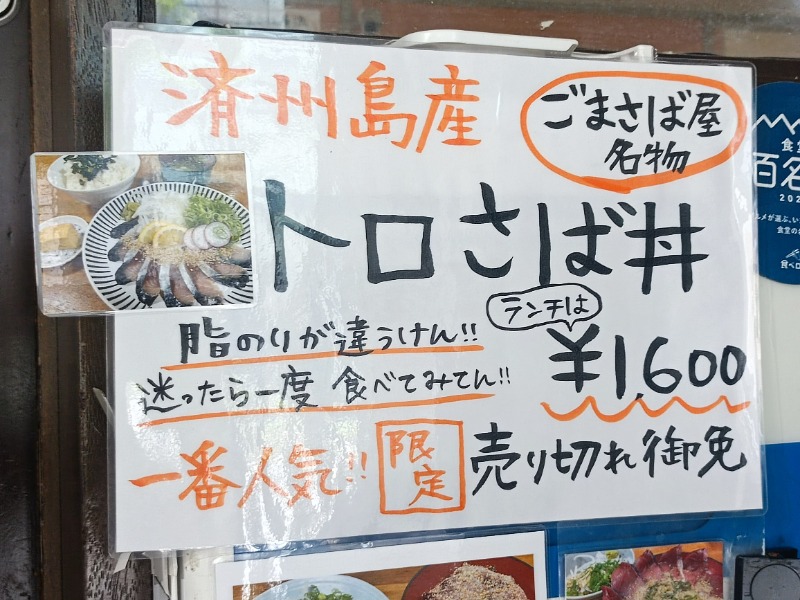 済州島産
ごまさば屋
名物
トロさば丼
脂のりが違うけん!!
ランチは
¥1,600
迷ったら一度 食べてみてん!!
一番人気!!
限定
売り切れ御免
食
百名
202